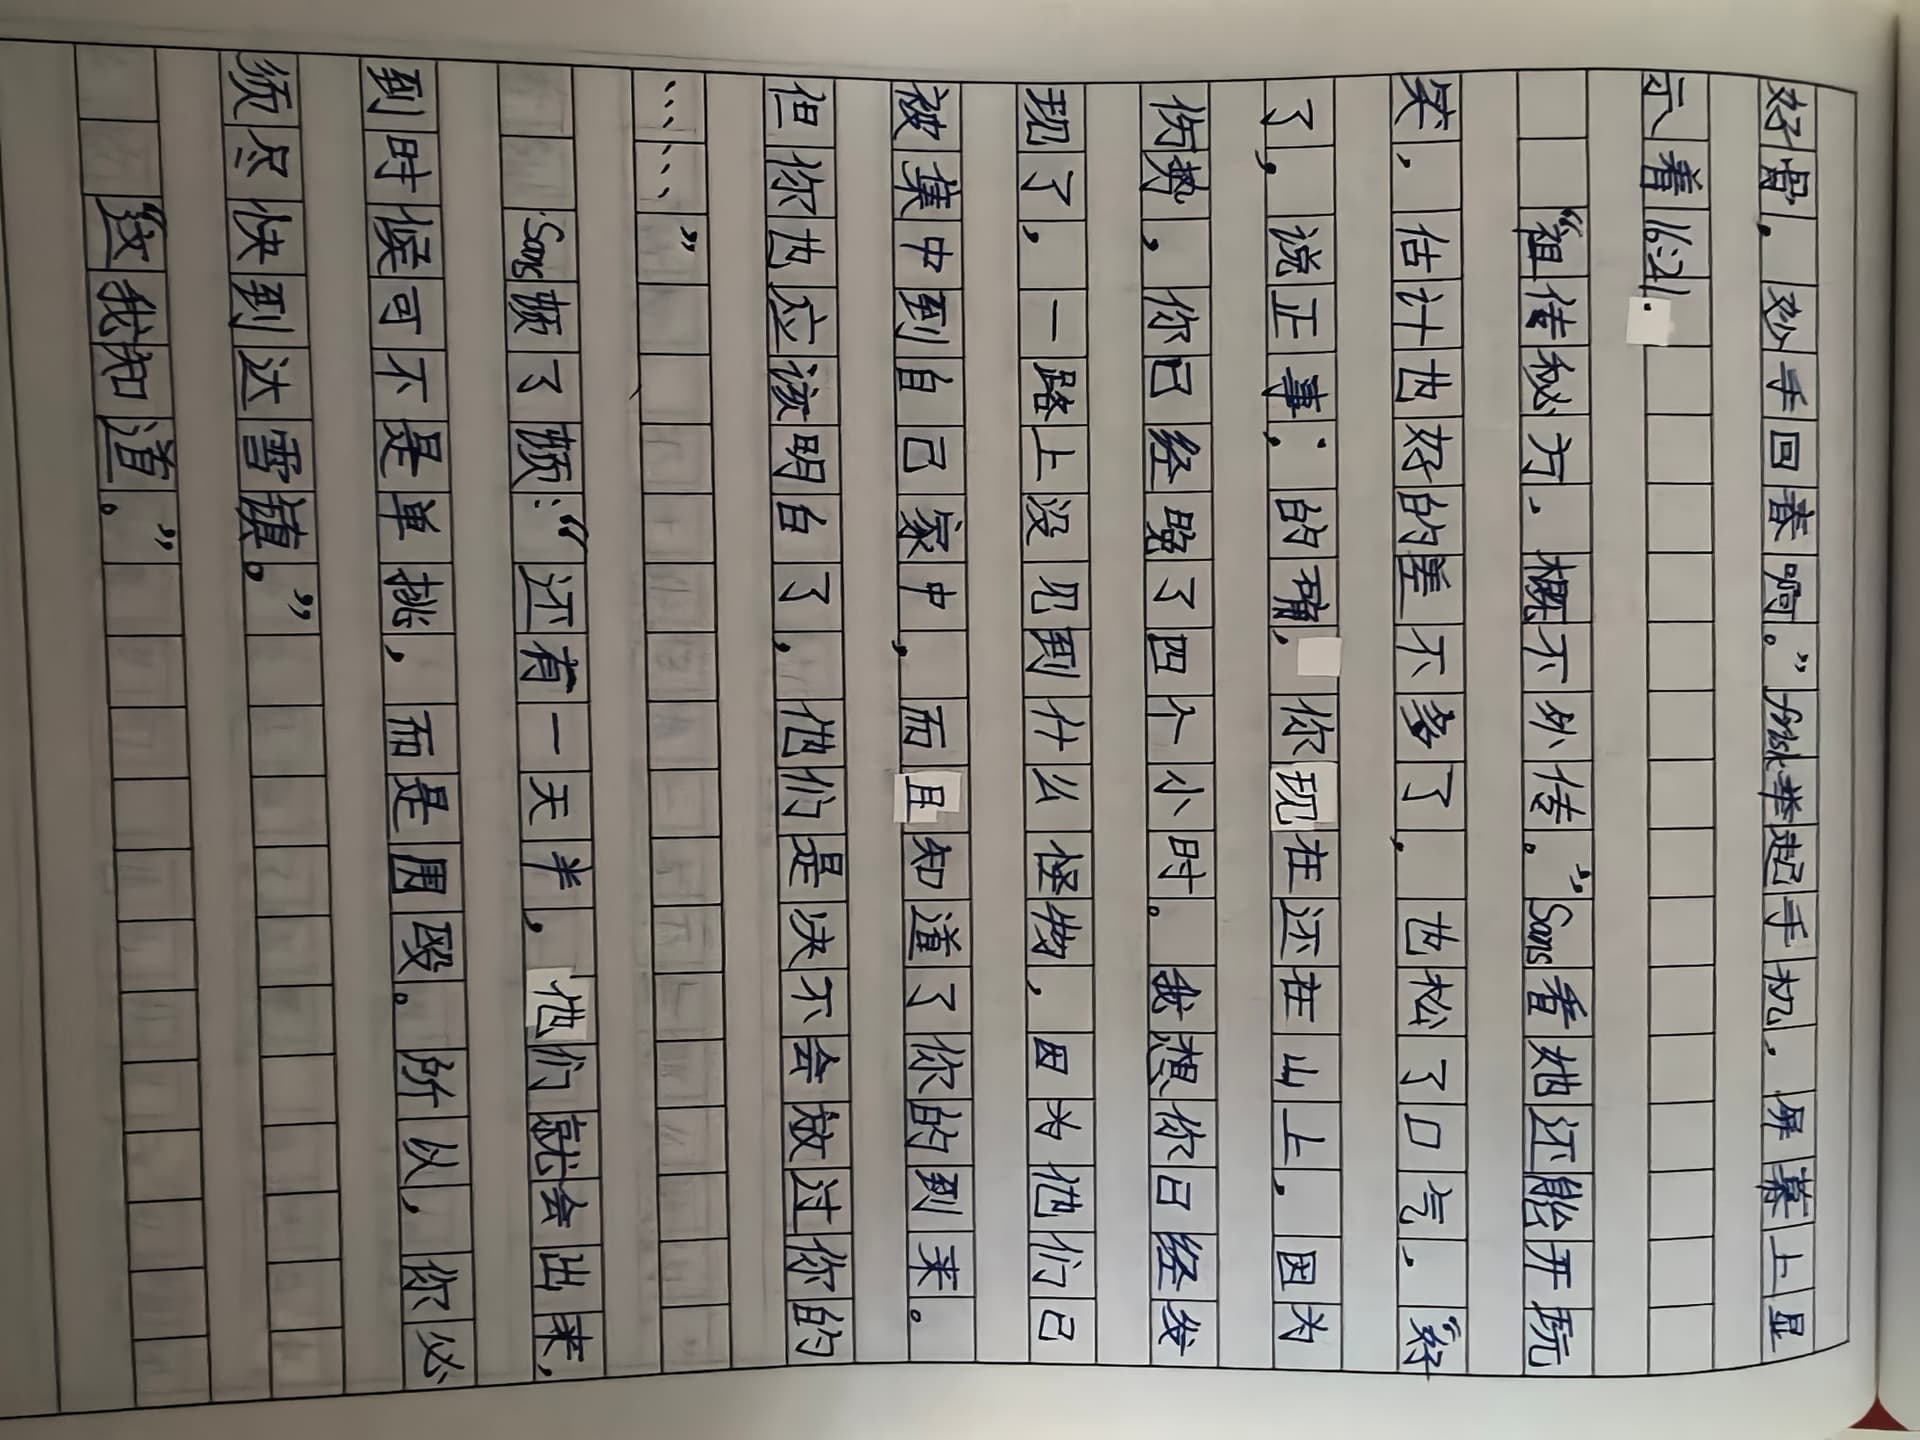 好骨，妙手回春啊。”frisk举起手机，屏幕上显
示着
“祖传秘方，概不外传。”Sans看她还能开玩
笑，估计也好的差不多了，也松了口气，“好
了，说正事；的确，你现在还在山上，因为
伤势，你已经晚了四个小时。我想你已经发
现了，一路上没见到什么怪物，因为他们已
被集中到自己家中，而且知道了你的到来。
但你也应该明白了，他们是决不会放过你的
……”
Sans顿了顿：“还有一天半，他们就会出来，
到时候可不是单挑，而是围殴。所以，你必
须尽快到达雪镇。”
“这我知道。”